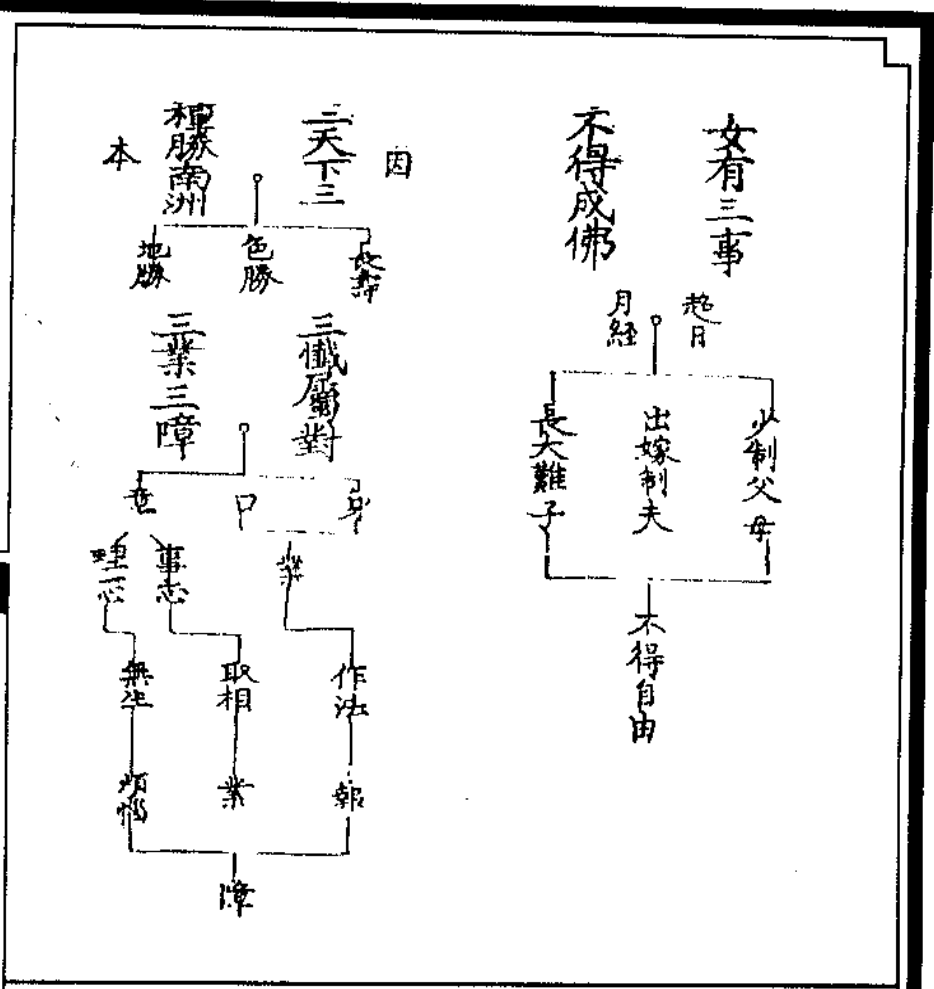 女有三事
不得成佛
超日
月経
少制父母
出嫁制夫
長大難子
不得自由
因
三天下三
種勝南洲
本
長壽
色勝
地勝
三懺屬對
三業三障
身
口
意
業
事
理
作法
取相
無生
報
業
煩惱
障